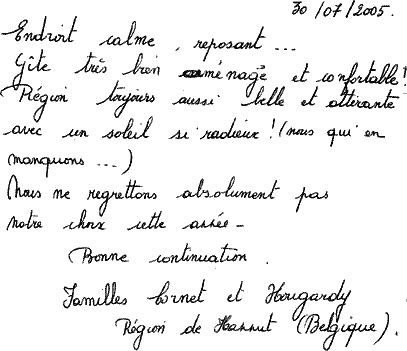 30/07/2005.
Endroit calme, reposant ...
Gîte très bien aménagé et confortable!
Région toujours aussi belle et attirante
avec un soleil si radieux! (nous qui en
manquons ...)
Nous ne regrettons absolument pas
notre choix cette année -
Bonne continuation.
Familles Cornet et Hougardy
Région de Hannut (Belgique).